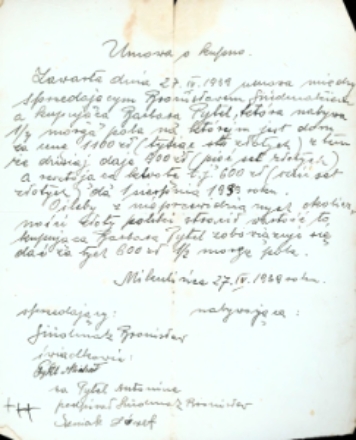 Umowa o kupno.
Zawarta dnia 27.IV.1939 umowa między
sprzedającym Bronisławem
a kupującą Barbarą Pytel, która nabywa
1/2 morga pola na którym jest dom
za cenę 1100 zł (tysiąc sto złotych) z tem
że dzisiaj daje 500 zł (pięć set złotych)
a resztująca kwota t.j. 600 zł (sześć set
złotych) da 1 sierpnia 1939 roku.
O ileby z nieprzewidzianych okolicz
ności złoty polski stracił wartość to
kupująca Barbara Pytel zobowiązuje się
dać za tych 600 zł 1/2 morga pola.
27.IV.1939 roku.
sprzedający: nabywająca:
Bronisław
świadkowie:
Pytel Michał
za Pytel Antonina
podpisał Bronisław
Józef